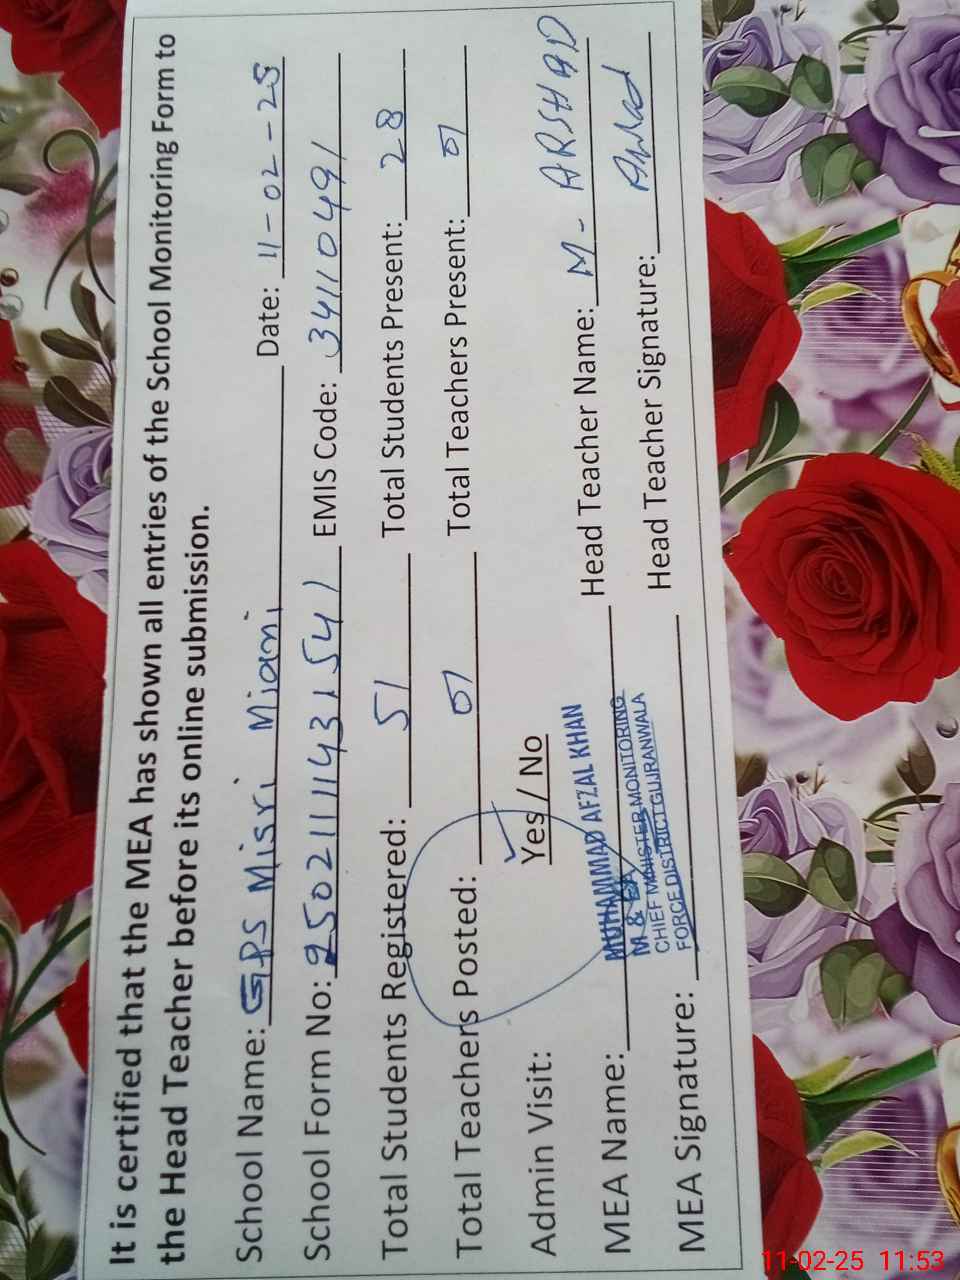 It is certified that the MEA has shown all entries of the School Monitoring Form to
the Head Teacher before its online submission.
School Name: GPS Misri Miani Date: 11-02-25
School Form No: 2502111431541 EMIS Code: 34110491
Total Students Registered: 51 Total Students Present: 28
Total Teachers Posted: 01 Total Teachers Present: 01
Admin Visit: Yes / No
MEA Name: MUHAMMAD AFZAL KHAN Head Teacher Name: M- ARSHAD
M & EA
CHIEF MINISTER MONITORING
FORCE DISTRICT GUJRANWALA
MEA Signature: Head Teacher Signature:
11-02-25 11:53